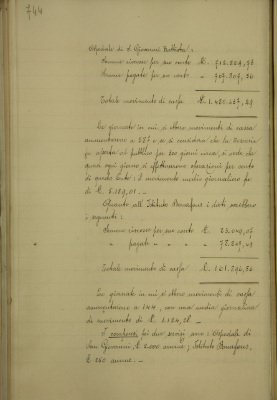 744
Ospedale di S. Giovanni Battista:
Somme riscosse per suo conto L.
Somme pagate per suo conto "
Totale movimento di cassa L.
Le giornate in cui si ebbe movimento di cassa
ammontarono a 287 e, se si considera che la Tesoreria
fu aperta al pubblico per 300 giorni circa, si vede che
quasi ogni giorno si effettuarono operazioni per conto
di quello Ente: il movimento medio giornaliero fu
di L. 5.189,01. —
Quanto all'Istituto Bonafous i dati sarebbero
i seguenti:
Somme riscosse per suo conto L.
" pagate " " " "
Totale movimento di cassa L.
Le giornate in cui si ebbe movimento di cassa
ammontarono a 144, con una media giornaliera
di movimento di L.
I compensi pei due servizi sono: Ospedale di
San Giovanni L. 2.000 annue; Istituto Bonafous,
L. 250 annue. —